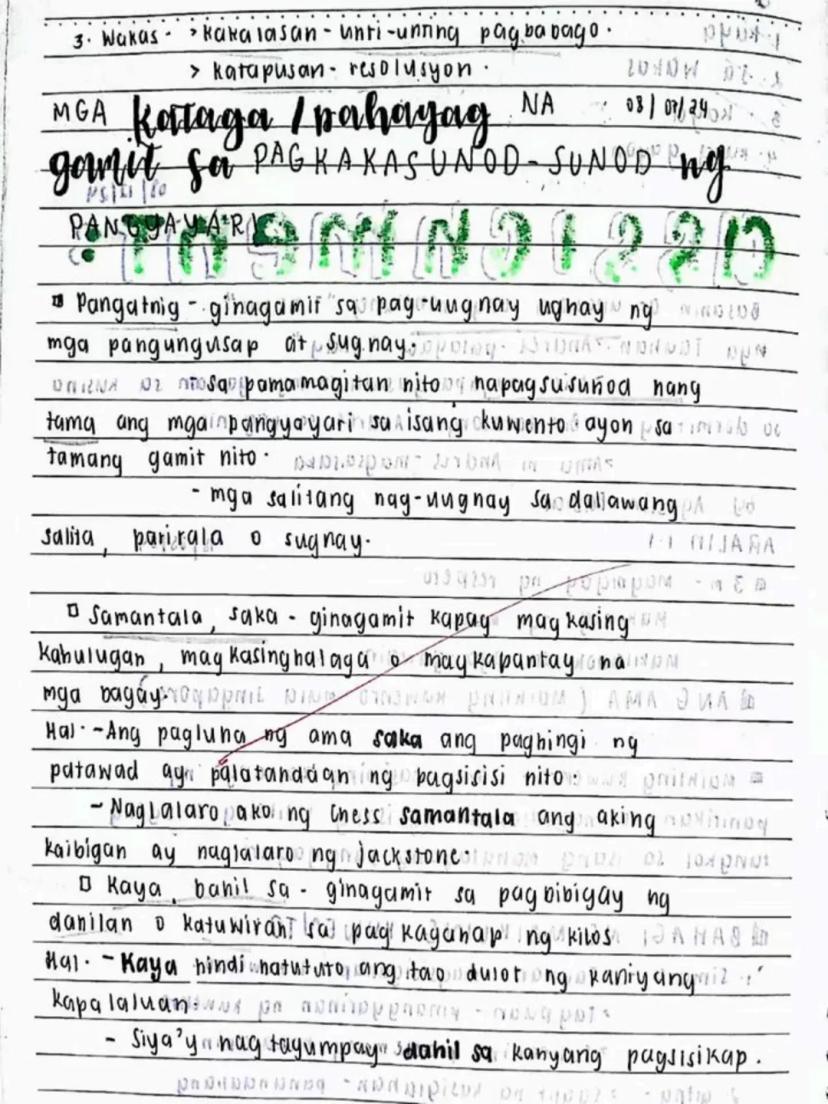 3. Wakas - > kakalasan - unti-unting pagbabago.
> katapusan - resolusyon.
MGA kataga / pahayag NA
gamit sa PAGKAKASUNOD-SUNOD ng
PANGYAYARI
Pangatnig - ginagamit sa pag-uugnay ugnay ng
mga pangungusap at sugnay.
sa pamamagitan nito, napagsusunod nang
tama ang mga pangyayari sa isang kuwento ayon sa
tamang gamit nito.
- mga salitang nag-uugnay sa dallawang
salita, parirala o sugnay.
Samantala, saka - ginagamit kapag magkasing
kahulugan, magkasinghalaga o magkapantay na
mga bagay.
Hal. - Ang pagluha ng ama saka ang paghingi ng
patawad ay palatandaan ng pagsisisi nito.
- Naglalaro ako ng chess samantala ang aking
kaibigan ay naglalaro ng jackstone.
Kaya, dahil sa - ginagamit sa pagbibigay ng
dahilan o katuwiran sa pagkaganap ng kilos
Hal. - Kaya hindi natututo ang tao dulot ng kaniyang
kapalaluan.
- Siya'y nagtayumpay dahil sa kanyang pagsisikap.